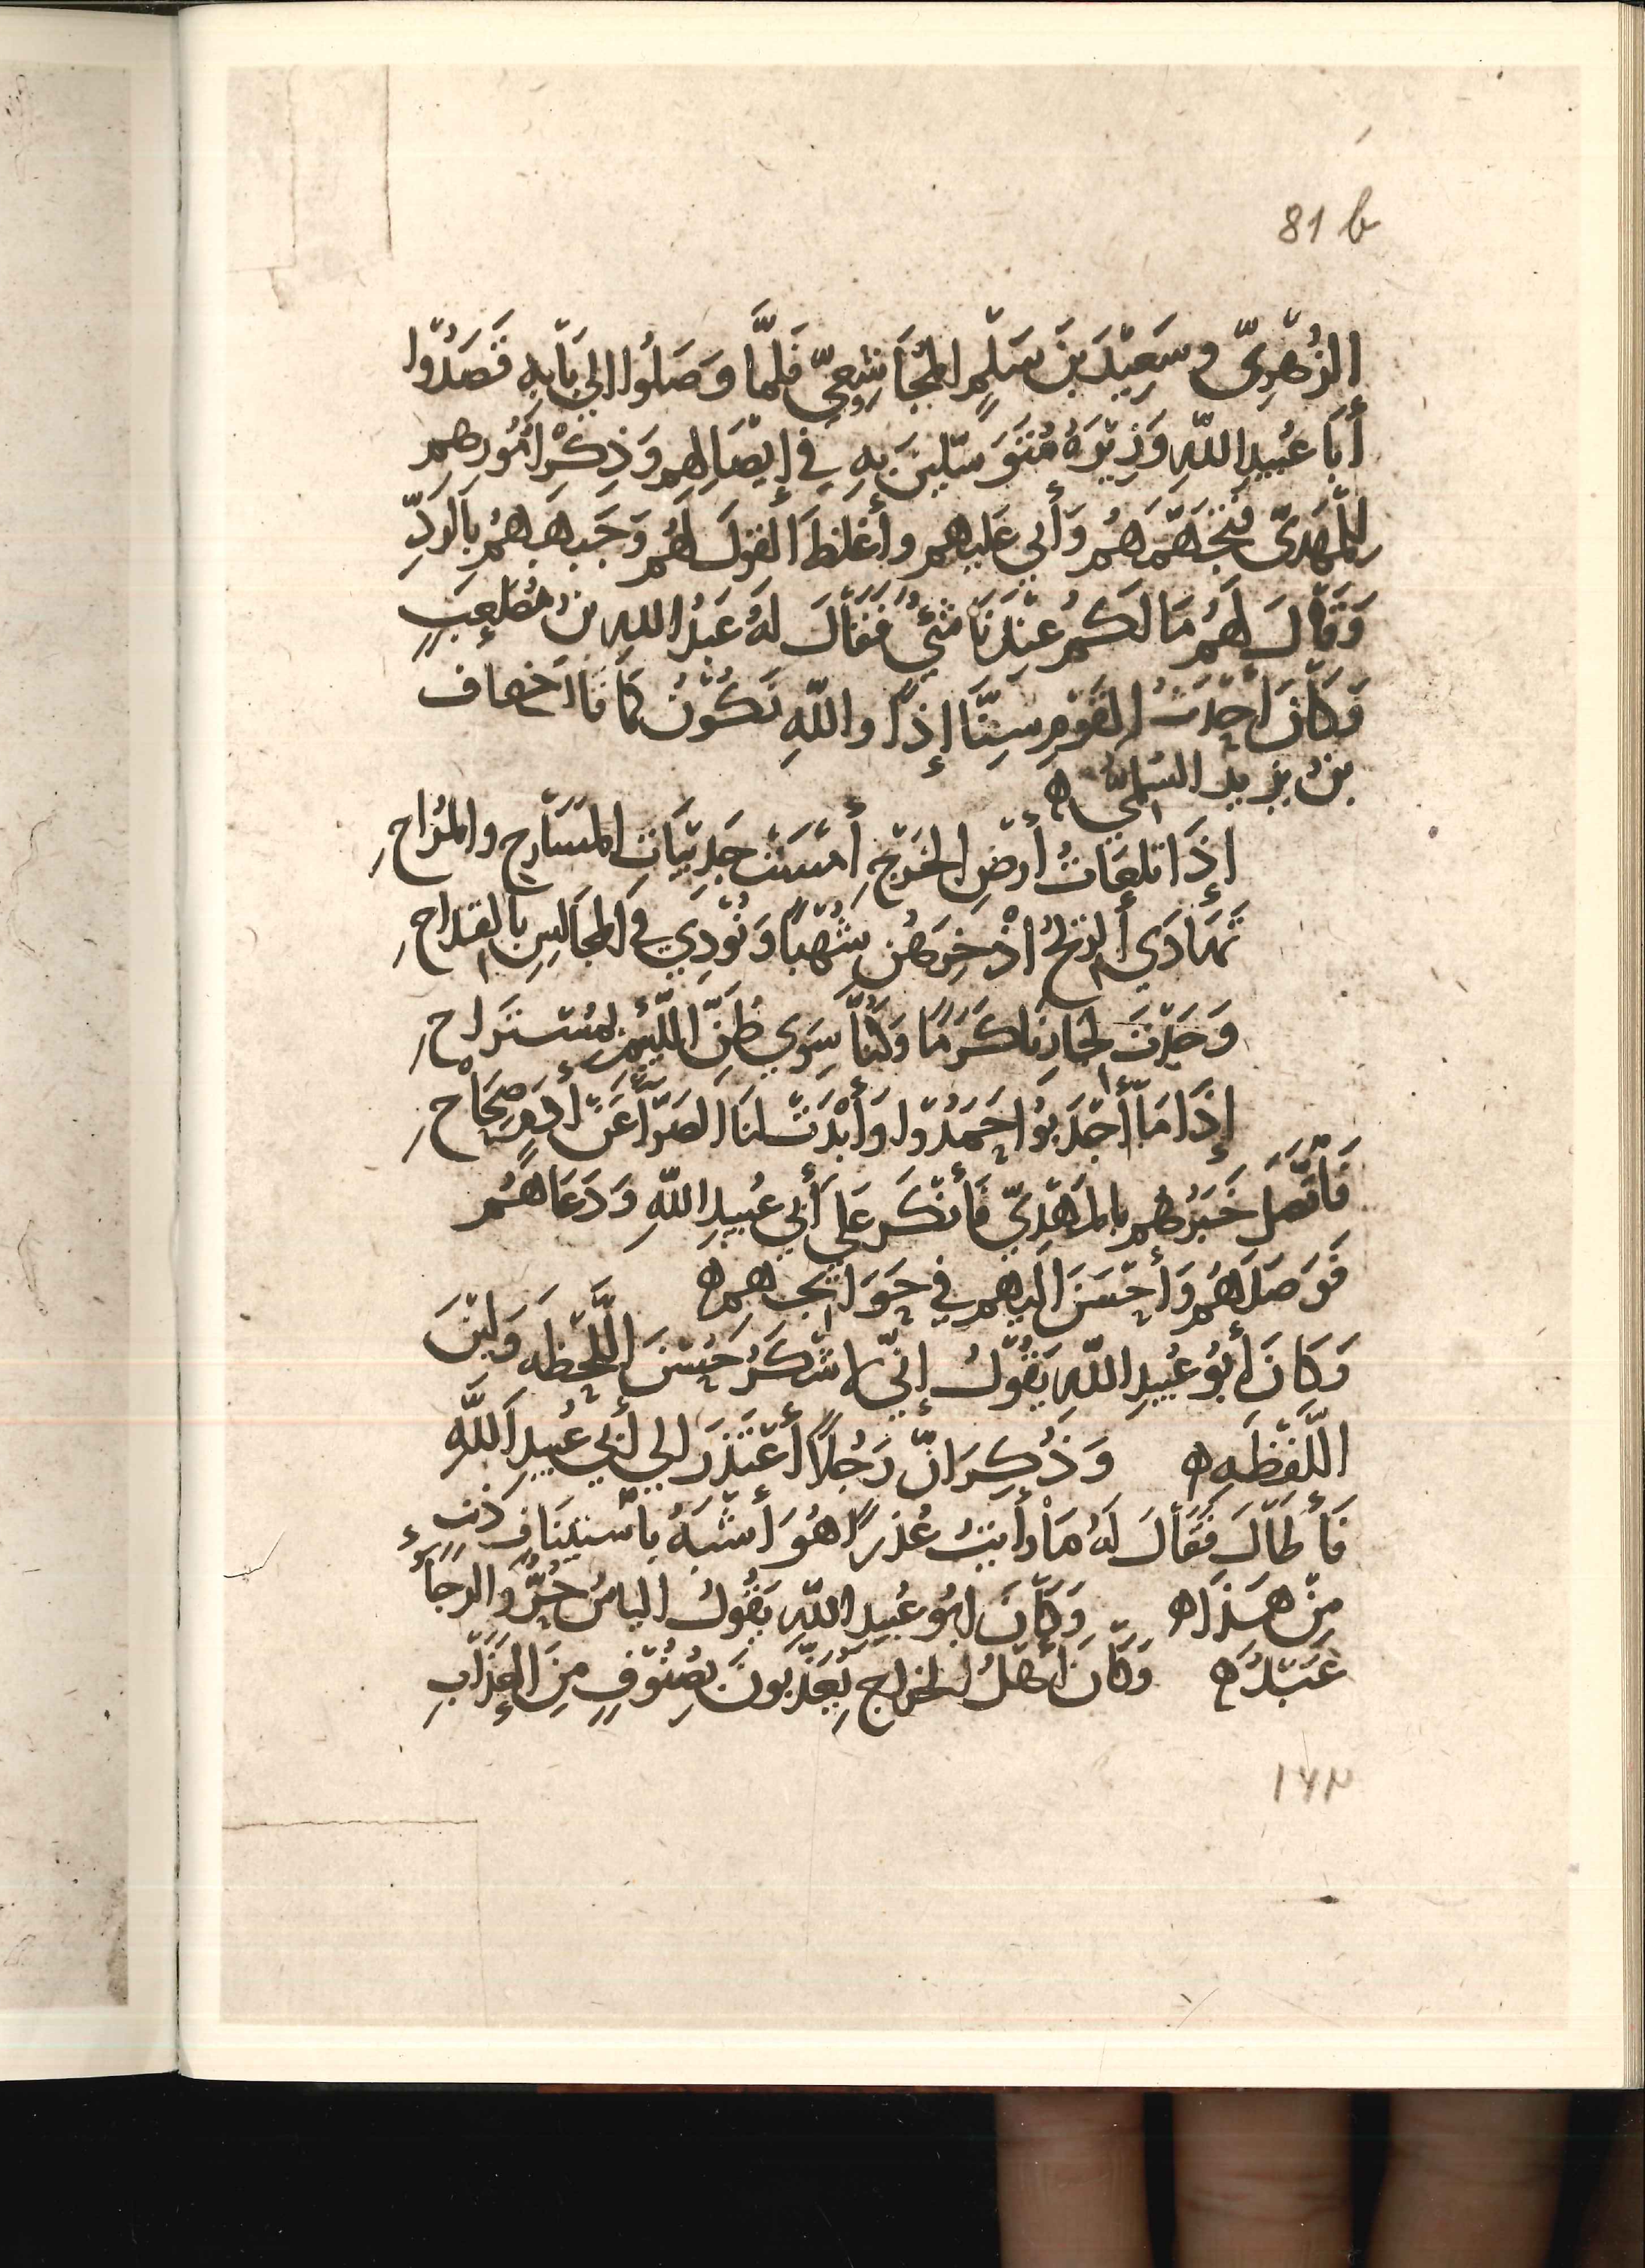 81 b
الزُّهْرِيّ وسَعِيْدَ بنَ سَلْمٍ المُجَاشِعِيّ فلمَّا وَصَلُوا الي بَابِهِ قَصَدُوا
أَبَا عُبَيدِ اللّهِ وَزِيْرَهُ مُتَوَسّلِينَ بِهِ فِي إيْصَالِهِم وَذِكْرِ أُمُورِهِم
لِلْمَهْدِيّ فَتَجَهَّمَهُم وَأَبي عَلَيهم وأَغْلَظَ القولَ لَهُم وَجَبَهَهُم بِالرَدِّ
وَقَالَ لَهُم مَا لَكُم عِنْدَنَا شَيْءٌ فَقَالَ لَهُ عَبْدُ اللهِ بنُ مُصْعَبٍ
وَكَانَ أَحْدَثَ القَوْمِ سِنًّا إِذًا واللّهِ نَكُوْنُ كَمَا قَالَ خفاف
بنُ يزيد السُلَمِيّ ه
إِذَا تلعَاتُ أرْضِ الخَرْجِ أَمْسَتْ جَدِيْبَاتِ المَسَارِحِ والمُرَاحِ
تَهَادَي الرِيْحُ اذْخِرَهُن شُهْبًا وَنُوْدِي فِي المَجَالِسِ بالقداحِ
وَجَدْتَ لِجَارِنَا كَرَمًا وَلَمَّا سِوَي ظَنِّ اللَّئِيْمِ لمُسْتَرَاحِ
إِذَا مَا أَجْدَبُوا حَمَدُوا وَأَبْدَتْ لنَا الضَرَّا عَنْ أُدُمٍ صِحَاحِ
فَاتَّصَلَ خَبَرُهُم بالمَهْدِيّ فَأَنْكَر عَلي أَبي عُبَيدِ اللّهِ وَدَعَاهُم
فَوَصَلَهُم وَأَحْسَنَ اليهم فِي حَوَائجهم ه
وَكَانَ أَبُو عُبَيدِ اللّهِ يَقُوْلُ إنّي لاشْكُرُ حُسْنَ اللَّحْظَه وَلِيْنَ
اللَّفْظَهِ ه وَذُكِرَ انّ رَجُلاً أعْتَذَرَ الي أَبي عُبَيدِ اللَّهِ
فَأَطَالَ فَقَالَ لَهُ مَا رأيتُ عُذرًا هُوَ أَشْبَهُ بِاسْتِينَافِ ذَنبٍ
مِنْ هَذَا ه وَكَانَ ابُو عُبَيدِ اللّهِ يَقُوْلُ الياسُ حُرٌّ وَالرَجَاءُ
عَبْدٌ ه وَكَانَ أَهْلُ الخراجِ يُعَذّبُونَ بِصُنُوْفٍ مِنَ العَذَابِ
١٦٢